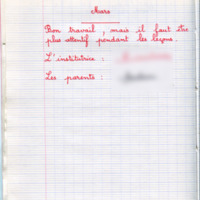 Mars
Bon travail, mais il faut être
plus attentif pendant les leçons.
L'institutrice :
Les parents :